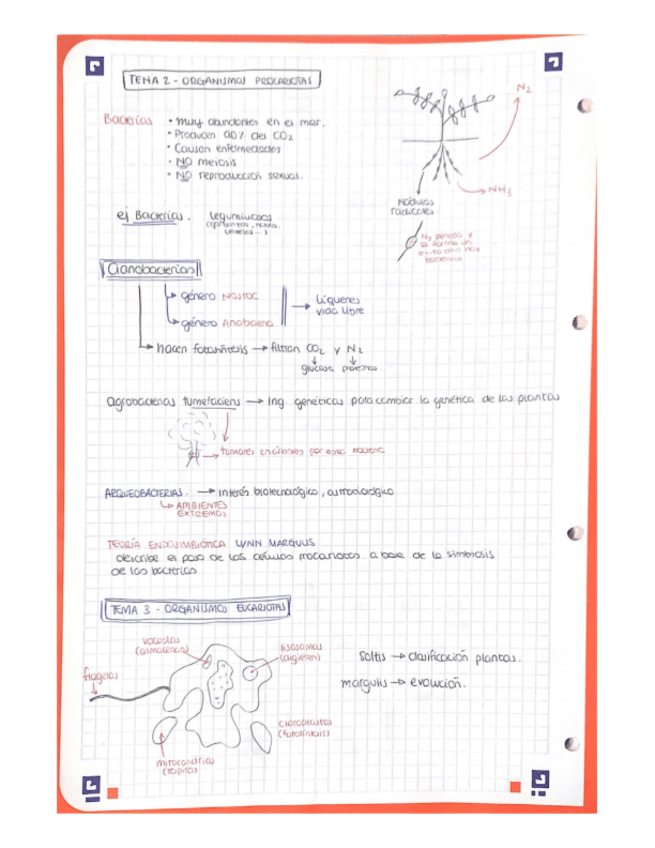 TEMA 2 - ORGANISMOS PROCARIOTAS
Bacterias
• muy abundantes en el mar.
• Producen 90% del CO2
• Causan enfermedades
• NO meiosis
• NO reproducción sexual.
N2
NH3
Nódulos
radicales
N2 penetra y
se forma un
ej Bacterias.
leguminosas
Cianobacterias
género NOSTOC
género Anabaena
→ líqueres
vida libre
hacen fotosíntesis → filtran CO2 y N2
glucosa proteínas
agrobacterias tumefaciens → Ing. genéticas para cambiar la genética de las plantas
→ tumores en árboles por esta bacteria
ARQUEOBACTERIAS. → interés biotecnológico,
↳ AMBIENTES
EXTREMOS
TEORÍA ENDOSIMBIÓTICA LYNN MARGULIS
describe el paso de las células procariotas a base de la simbiosis
de las bacterias
TEMA 3 - ORGANISMOS EUCARIOTAS
vacuolas
(almacenas)
lisosomas
(digieren)
flagelos
soltis → clasificación plantas.
margulis → evolución.
cloroplastos
(fotosíntesis)
mitocondrias
(respiras)